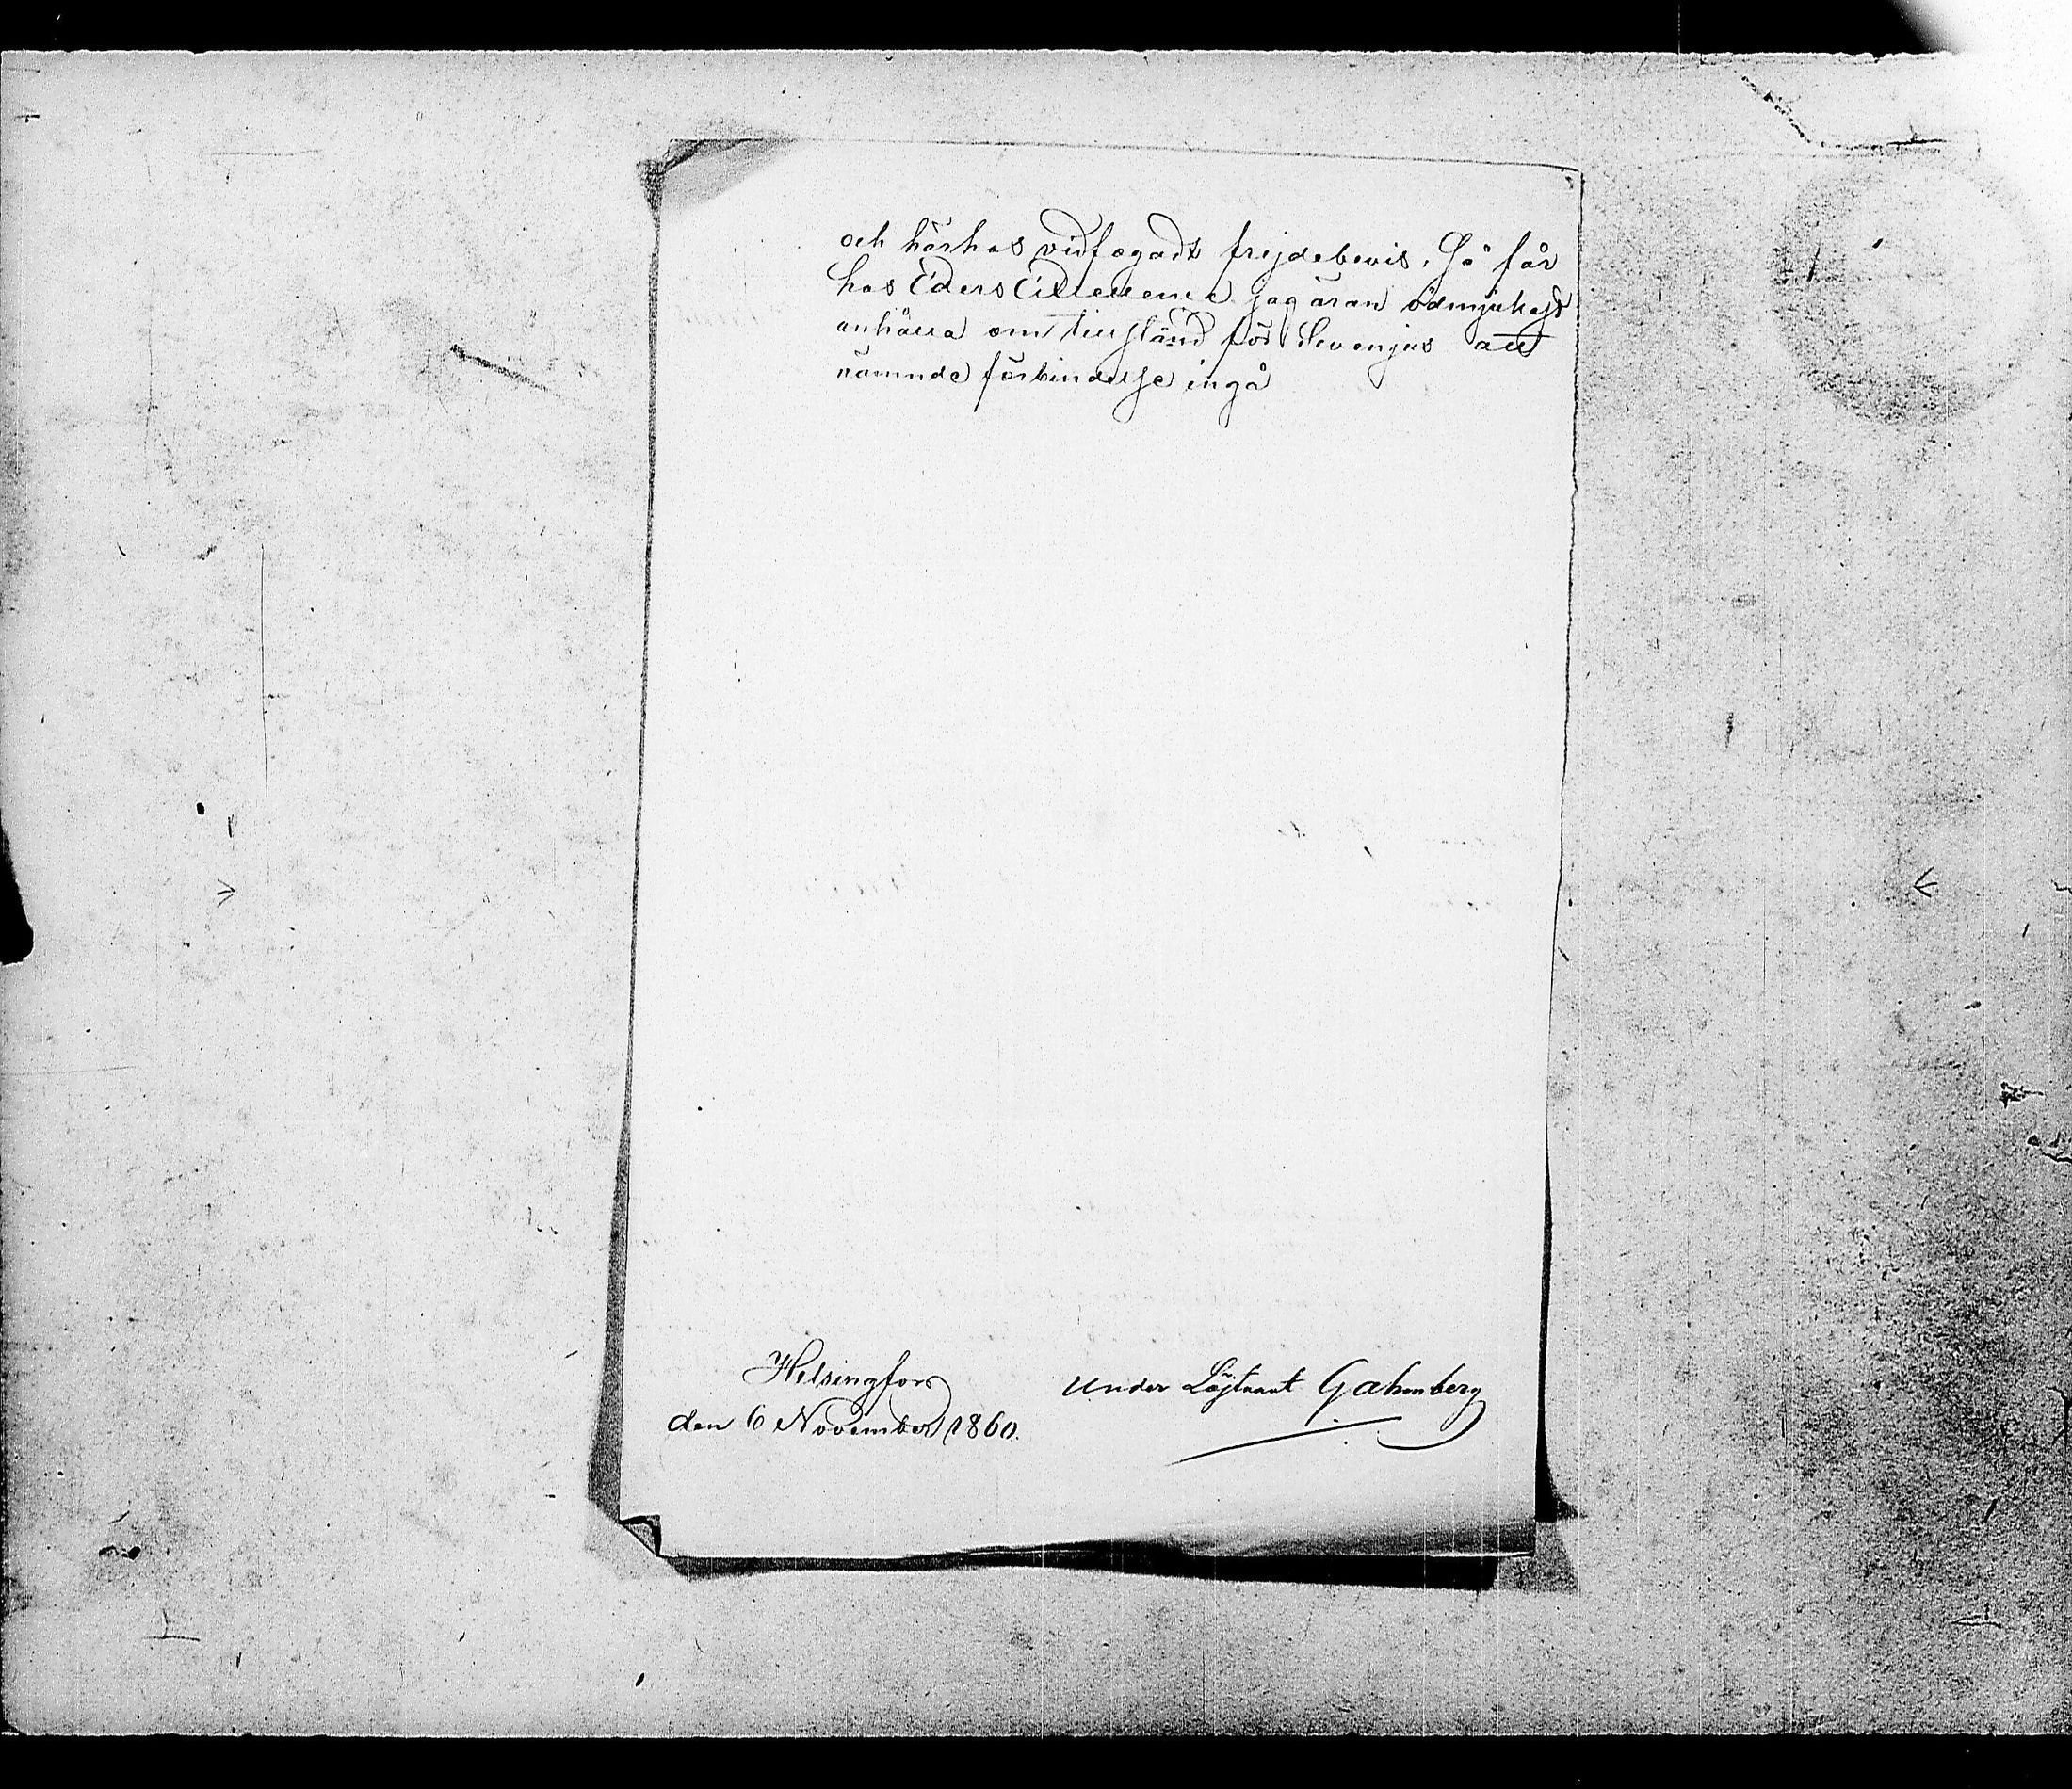 och härhos vidfogadt frejdebevis. Så får
hos Eders Excellence jag äran ödmjukast
anhålla om tillstånd för Sevonjus att
nämnde förbindelse ingå
Helsingfors
den 6 November 1860.
Under Löjtnant Gahmberg